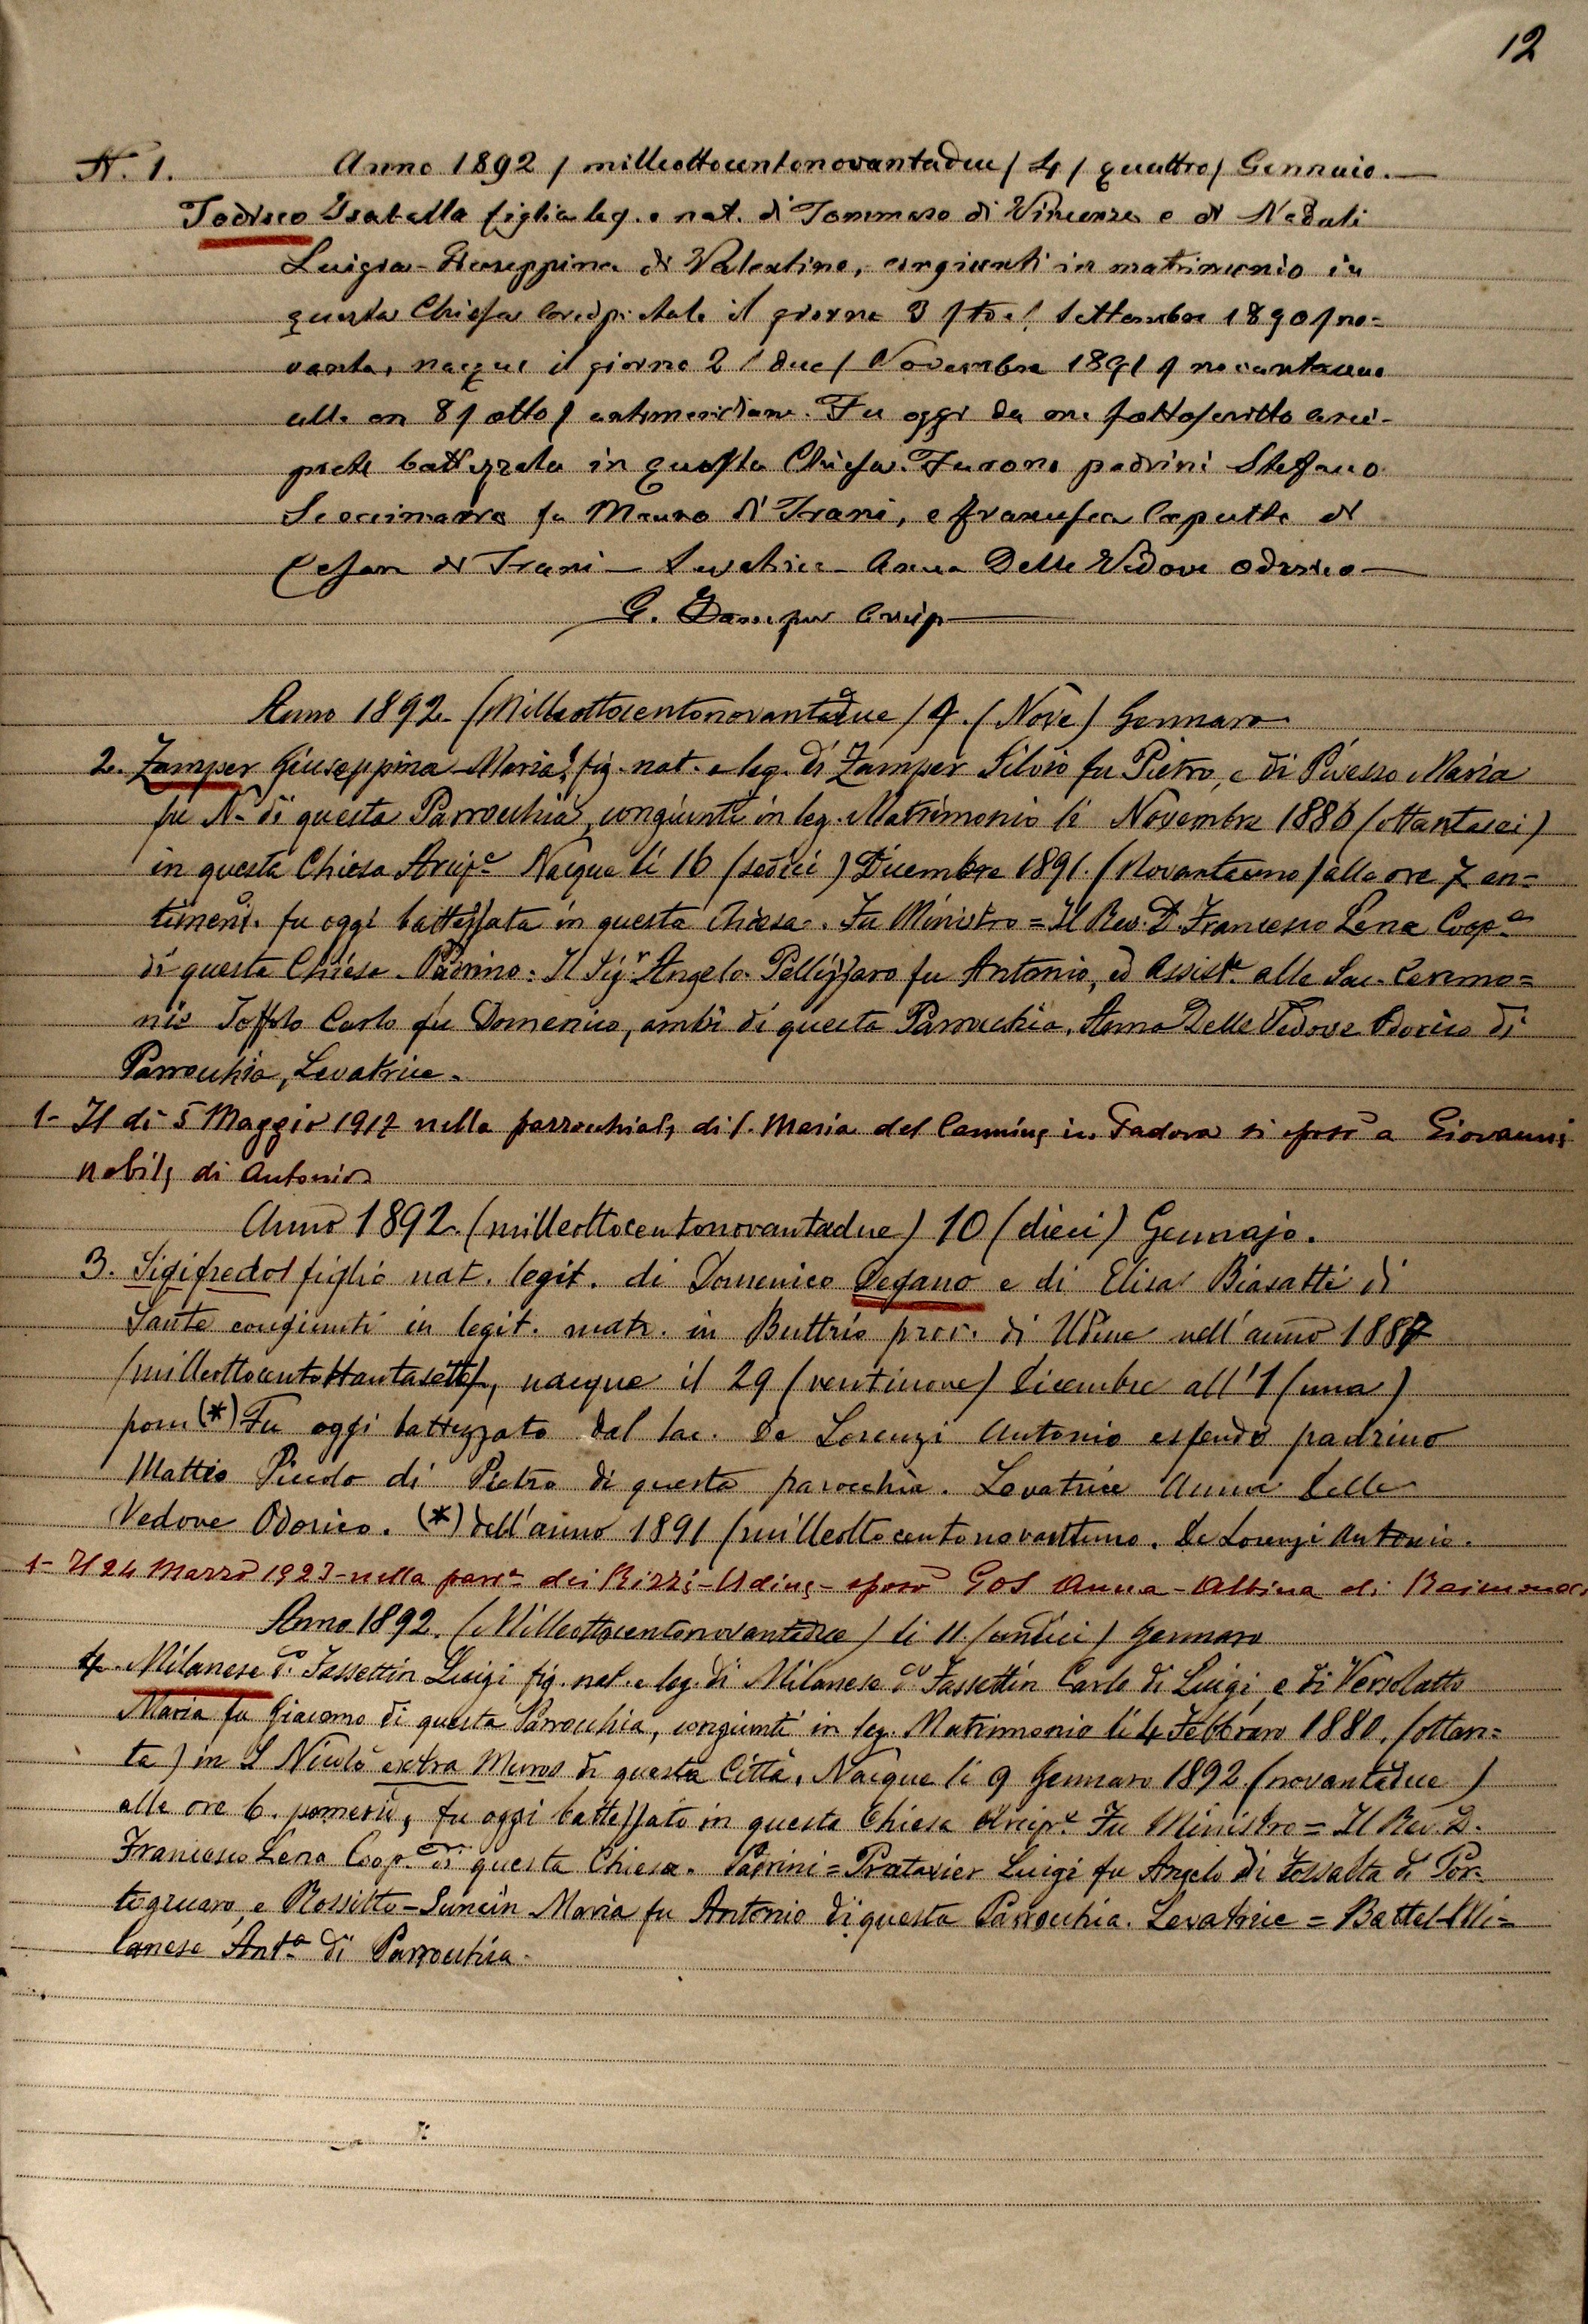 12
N. 1. Anno 1892 / milleottocentonovantadue / 4 / quattro / Gennaio. —
Todisco Isabella figlia leg. e nat. di Tommaso di Vincenzo e di Nadali
Luigia-Giuseppina di Valentino, congiunti in matrimonio in
questa Chiesa Arcipretale il giorno 3 / tre / Settembre 1890 / no-
vanta, nacque il giorno 2 / due / Novembre 1891 / novantauno
alle ore 8 / otto / antimeridiane. Fu oggi da me sottoscritto arci-
prete battezzata in questa Chiesa. Furono padrini Stefano
Scoccimarro fu Mauro di Trani, e Francesca Caputo di
Cesare di Trani — Levatrice — Anna Delle Vedove Odorico —
G. Arcip
Anno 1892. (Milleottocentonovantadue / 9. (Nove) Gennaro
2. Zamper Giuseppina Maria fig. nat. e leg. di Zamper Silvio fu Pietro, e di Maria
fu N- di questa Parrocchia, congiunti in leg. Matrimonio li Novembre 1886 (ottantasei)
in questa Chiesa Arcip.e Nacque li 16 (sedici) Dicembre 1891. (Novantauno) alle ore 7 an=
timeri. fu oggi battezzata in questa Chiesa. Fu Ministro = Il Rev. D. Francesco Lena Coop.e
di questa Chiesa. Padrino. Il Sig.r Angelo Pellizzaro fu Antonio, ed Assist.e alle Sac. Ceremo=
nie Toffolo Carlo fu Domenico, ambi di questa Parrocchia. Anna Delle Vedove Odorico di
Parrocchia, Levatrice.
1- Il di 5 Maggio 1917 nella parrocchiale di S. Maria del Carmine in Padova si sposò a Giovanni
nobile di Antonio
Anno 1892. (milleottocentonovantadue) 10 (dieci) Gennajo.
3. Sigifredo figlio nat. legit. di Domenico Degano e di Elisa Biasatti di
Sante congiunti in legit. matr. in Buttrio prov. di Udine nell'anno 1887
(milleottocentottantasette), nacque il 29 (ventinove) Dicembre all'1 (una)
pom (*) Fu oggi battezzato dal sac. De Lorenzi Antonio essendo padrino
Mattia Piccolo di Pietro di questa parocchia. Levatrice Anna Delle
Vedove Odorico. (*) dell'anno 1891 (milleottocentonovantuno. De Lorenzi Antonio.
1- Il 24 Marzo 1923 - nella parr.a dei Rizzi - Udine - sposò Gos Anna - Albina di Raimondo
Anno 1892. (Milleottocentonovantadue) li 11. (undici) Gennaro
4. Milanese d.o Fassettin Luigi fig. nat. e leg. di Milanese d.o Fassettin Carlo di Luigi, e di Versolatto
Maria fu Giacomo di questa Parrocchia, congiunti in leg. Matrimonio li 4 Febbraro 1880. (ottan=
ta) in S Nicolò extra Muros di questa Città. Nacque li 9 Gennaro 1892. (novantadue)
alle ore 6. pomerid, fu oggi battezzato in questa Chiesa Arcipr.e Fu Ministro = Il Rev. D.
Francesco Lena Coop.e di questa Chiesa. Padrini = Pratavier Luigi fu Angelo di Fossalta di Por-
togruaro, e Rossitto - Maria fu Antonio di questa Parrocchia. Levatrice = Battel-Mi=
lanese Ant.a di Parrocchia.